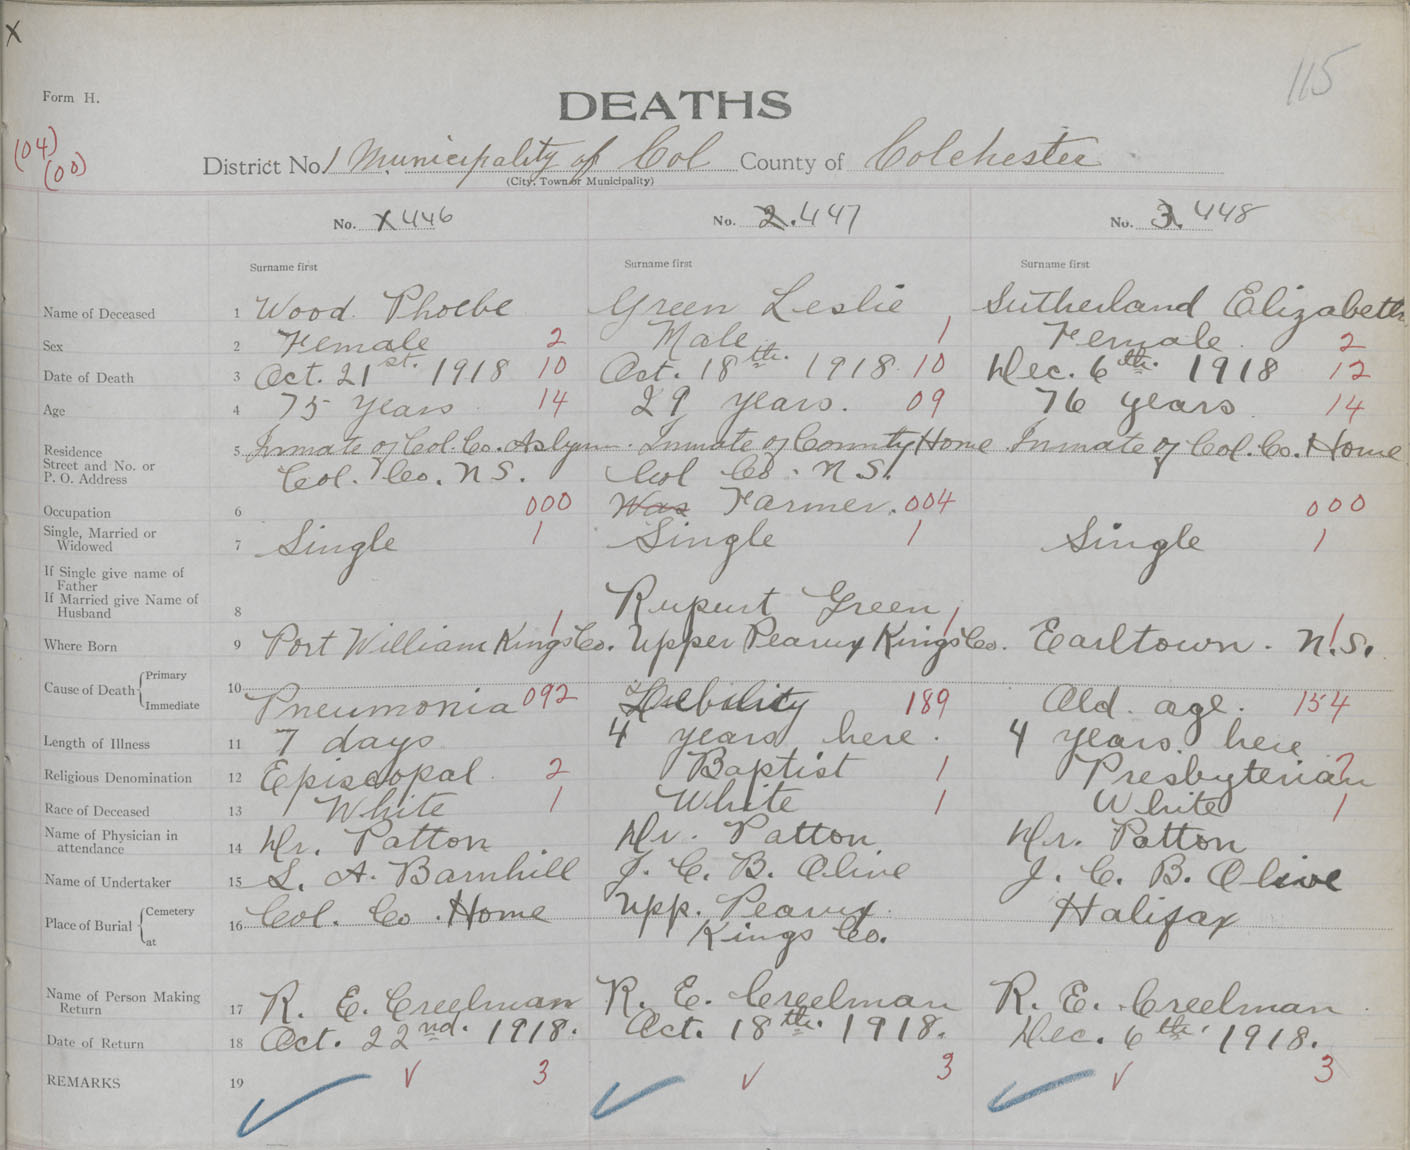 X
115
Form H.
DEATHS
(04)
(00)
District No. 1 Municipality of Col County of Colchester
(City, Town or Municipality)
No. 1 446 No. 2. 447 No. 3. 448
Surname first Surname first Surname first
Name of Deceased 1 Wood Phoebe Green Leslie Sutherland Elizabeth
Sex 2 Female 2 Male 1 Female 2
Date of Death 3 Oct. 21st. 1918 10 Oct. 18th. 1918 10 Dec. 6th. 1918 12
Age 4 75 years 14 29 years. 09 76 years 14
Residence 5 Inmate of Col. Co. Aslym. Inmate of County Home Inmate of Col. Co. Home
Street and No. or
P. O. Address Col. Co. N S. Col Co. N S.
Occupation 6 000 Was Farmer. 004 000
Single, Married or
Widowed 7 Single 1 Single 1 Single 1
If Single give name of
Father
If Married give Name of
Husband 8 Rupurt Green
1 1 1
Where Born 9 Port William Kings Co. Upper Kings Co. Earltown. N.S.
Cause of Death Primary 10
Immediate Pneumonia 092 Debility 189 Old age. 154
Length of Illness 11 7 days 4 years here. 4 years. here
Religious Denomination 12 Episcopal 2 Baptist 1 Presbyterian
Race of Deceased 13 White 1 White 1 White 1
Name of Physician in
attendance 14 Dr. Patton Dr. Patton Dr. Patton
Name of Undertaker 15 L. A. Barnhill J. C. B. Olive J. C. B. Olive
Place of Burial Cemetery 16 Col. Co. Home Upp. Halifax
at Kings Co.
Name of Person Making
Return 17 R. E. Creelman R. E. Creelman R. E. Creelman
Date of Return 18 Oct. 22nd. 1918. Oct. 18th. 1918. Dec. 6th. 1918.
REMARKS 19 3 3 3